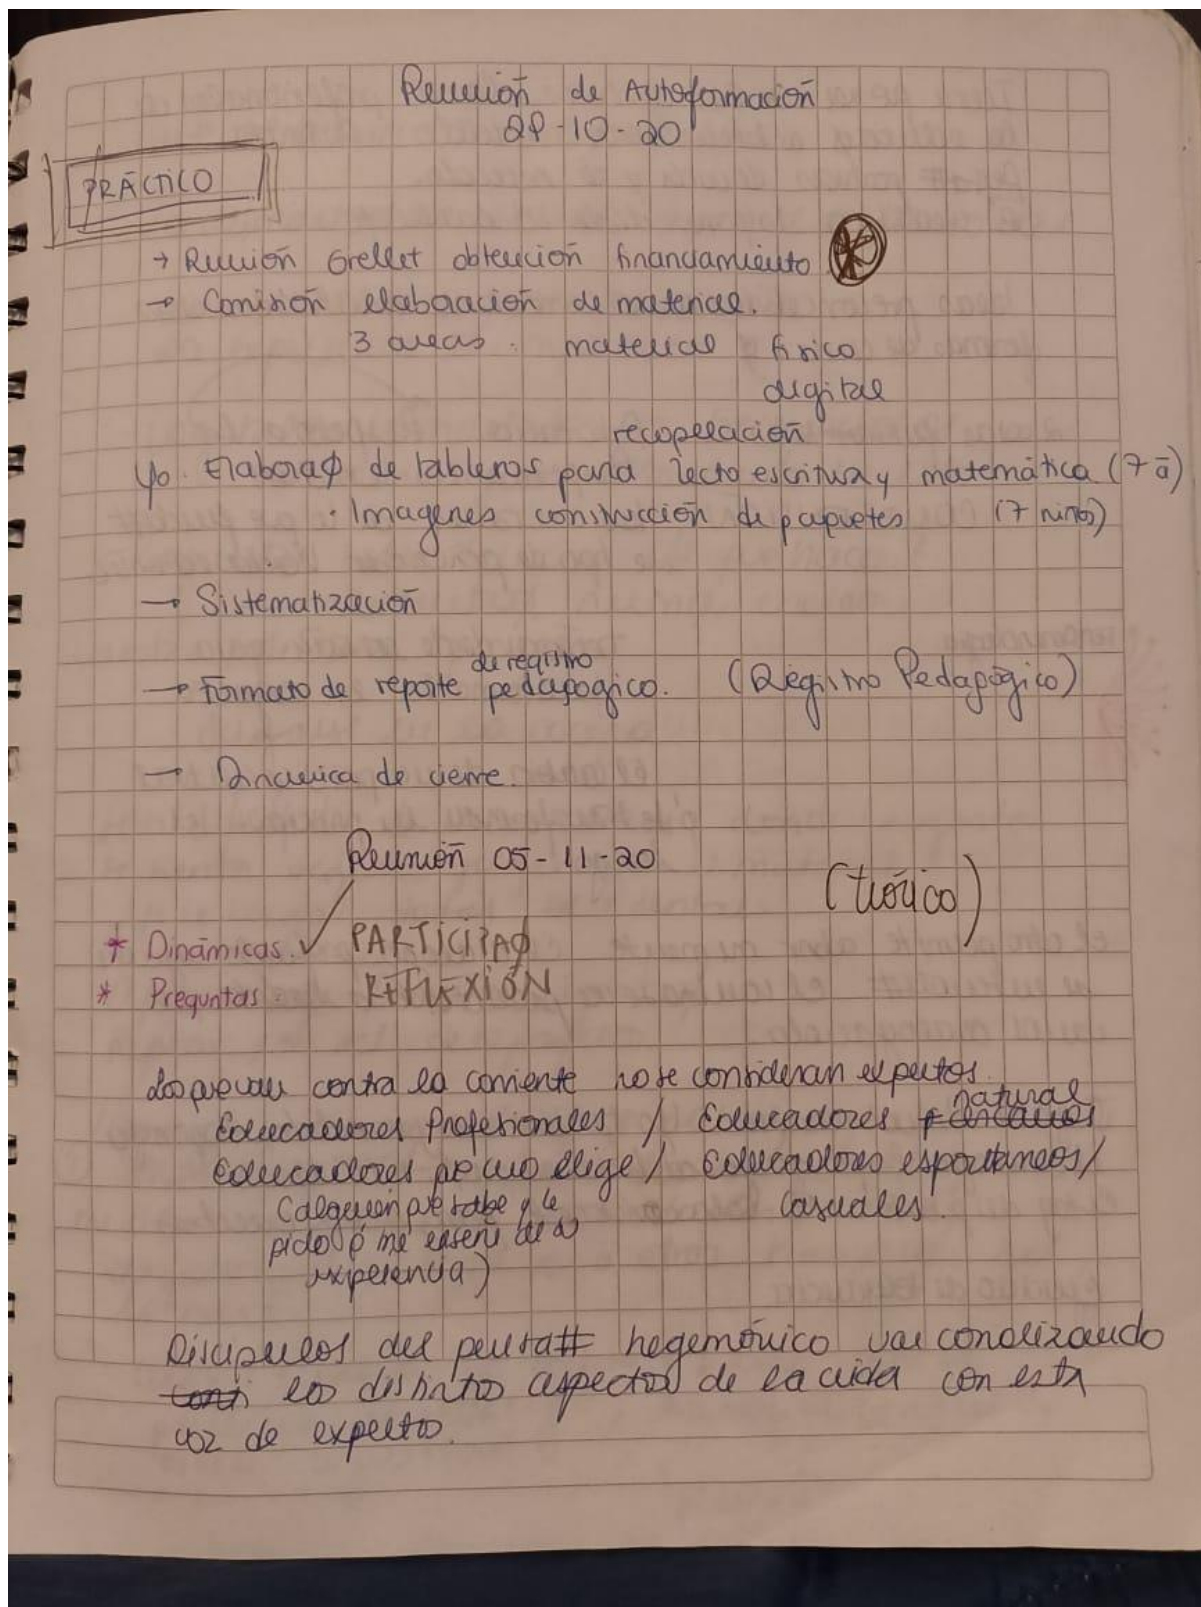 Reunión de Autoformación
28-10-20
PRÁCTICO
→ Reunión Grellet obtención financiamiento
→ Comisión elaboración de material.
3 areas. material físico
digital
recopilación
Yo. Elaboraꞙ de tableros para lecto escritura y matemática (7 a)
· Imagenes construcción de papeletes (7 niños)
→ Sistematización
de registro
→ Formato de reporte pedagogico. (Registro Pedagógico)
→ Dinamica de cierre.
Reunión 05-11-20
(teórico)
* Dinámicas. ✓ PARTICIPAꞙ
* Preguntas. REFLEXIÓN
Los que van contra la corriente no se consideran expertos.
natural
Educadores Profesionales / Educadores
Educadores que uno elige / Educadores espontaneos /
(alguien que sabe y le casuales.
pido q me enseñe de su
experiencia)
Discipulos del pensa# hegemónico van canalizando
los distintos aspectos de la vida con esta
voz de experto.